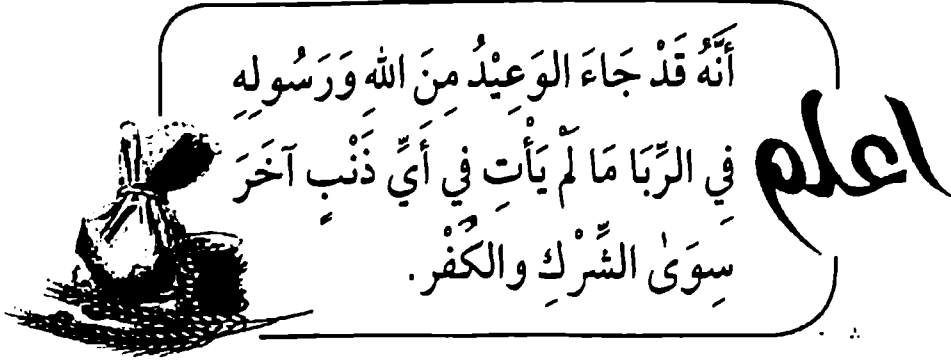 اعلم
أَنَّهُ قَدْ جَاءَ الوَعِيْدُ مِنَ اللهِ وَرَسُولِهِ
فِي الرِّبَا مَا لَمْ يَأْتِ فِي أَيِّ ذَنْبٍ آخَرَ
سِوَىٰ الشِّرْكِ والكُفْرِ.